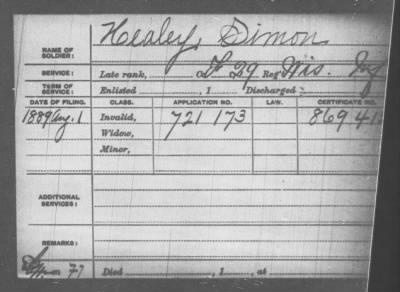 NAME OF SOLDIER: Healey, Simon
SERVICE: Late rank, Co. D. 29 Reg Wis. Inf
TERM OF SERVICE: Enlisted , 1 Discharged
DATE OF FILING. CLASS. APPLICATION NO. LAW. CERTIFICATE NO.
1889 Aug. 1 Invalid, 721 173 869 41
Widow,
Minor,
ADDITIONAL SERVICES:
REMARKS:
77 Died , 1 , at